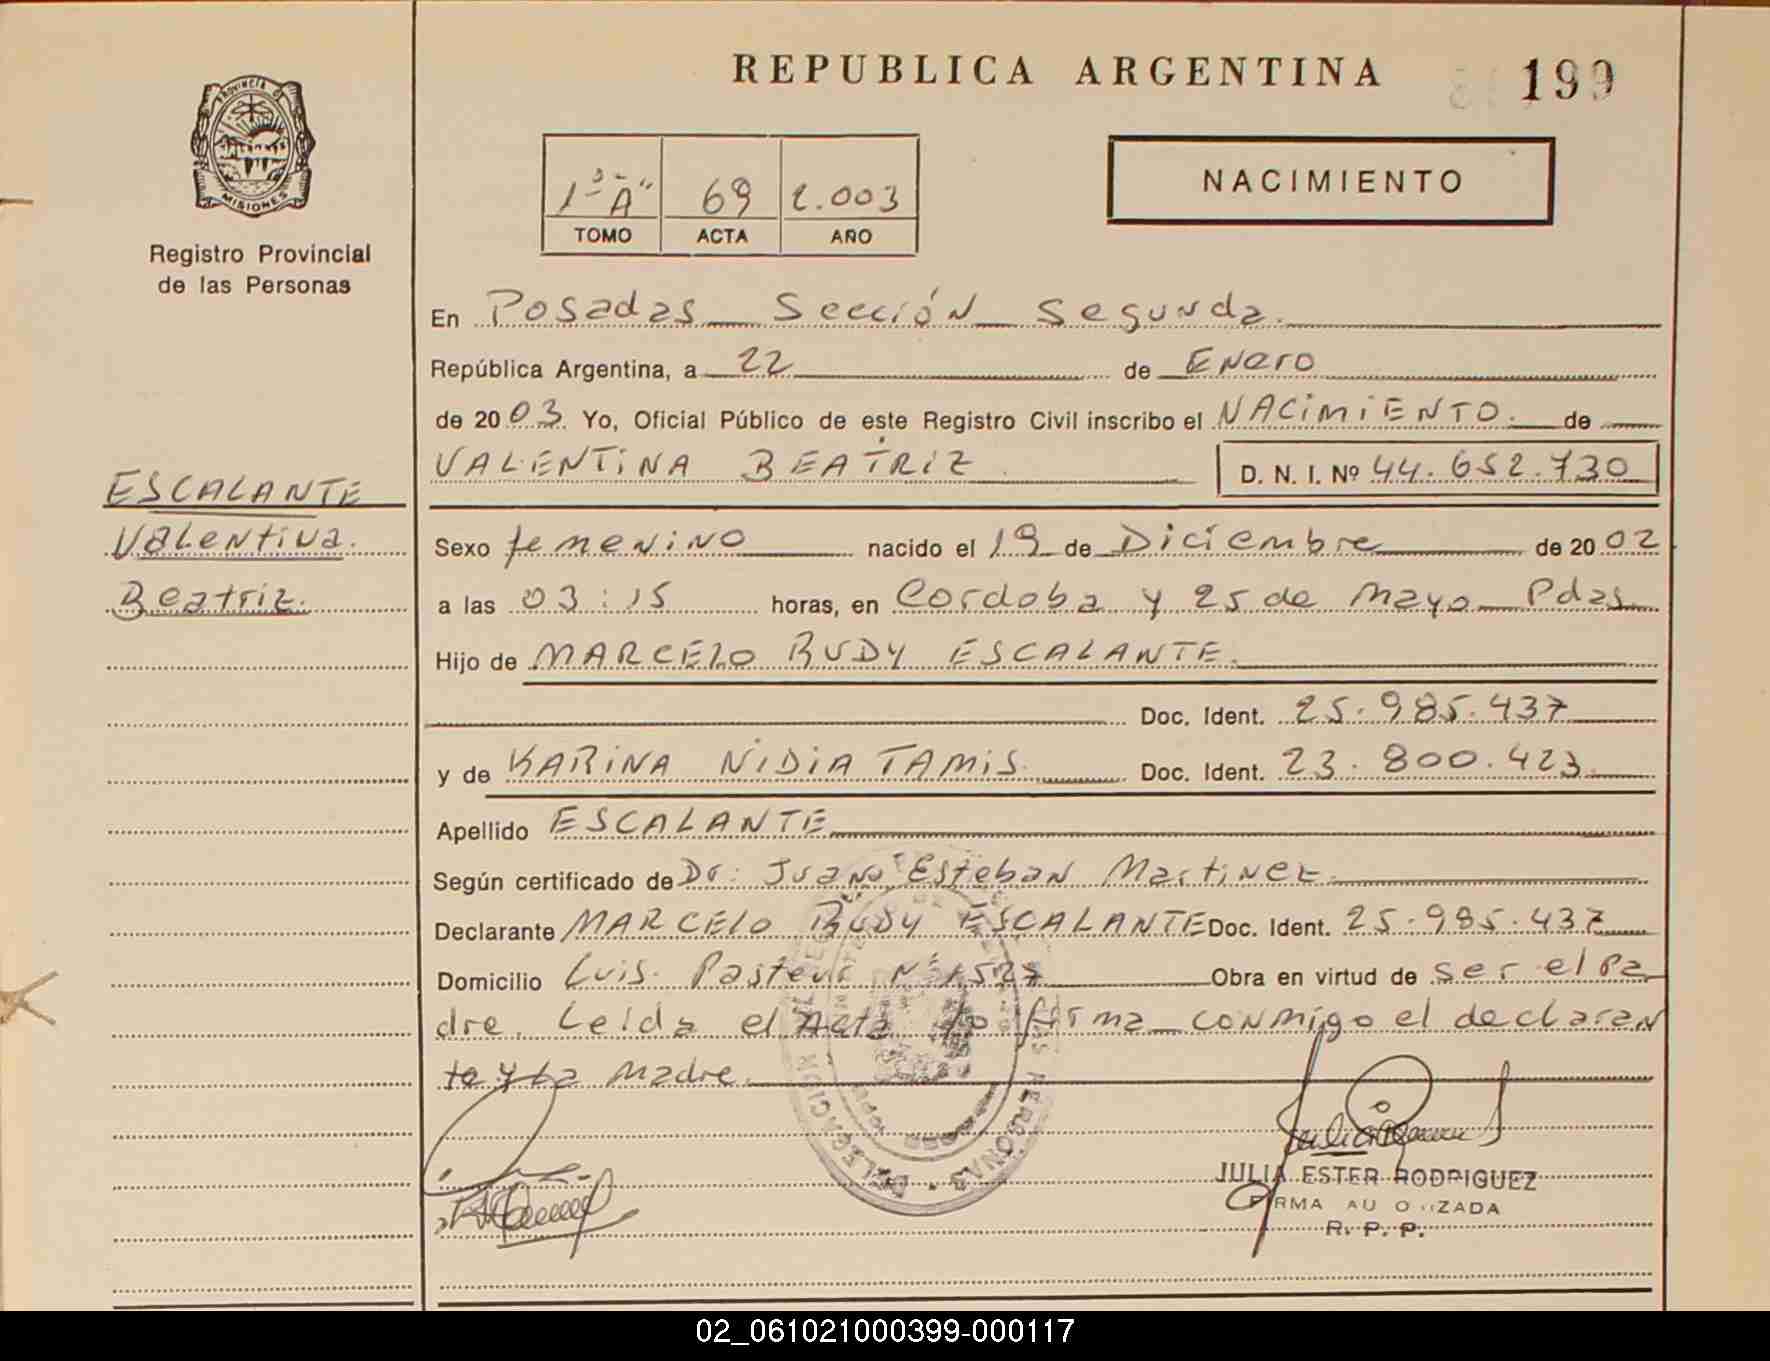 REPUBLICA ARGENTINA
199
PROVINCIA DE
MISIONES
Registro Provincial
de las Personas
1º "A" 69 2.003
TOMO ACTA AÑO
NACIMIENTO
ESCALANTE
Valentina.
Beatriz.
En Posadas Sección Segunda.
República Argentina, a 22 de Enero
de 2003. Yo, Oficial Público de este Registro Civil inscribo el NACIMIENTO. de
VALENTINA BEATRIZ D. N. I. Nº 44.652.730
Sexo femenino nacido el 19 de Diciembre de 2002
a las 03:15 horas, en Cordoba y 25 de Mayo Pdas
Hijo de MARCELO RUDY ESCALANTE.
Doc. Ident. 25.985.437
y de KARINA NIDIA TAMIS. Doc. Ident. 23.800.423
Apellido ESCALANTE
Según certificado de Dr: Juan Esteban Martinez.
Declarante MARCELO RUDY ESCALANTE Doc. Ident. 25.985.437
Domicilio Luis Pasteur Nº 1527 Obra en virtud de ser el Pa
dre. Leida el Acta la firma conmigo el declaran
te y La Madre.
DELEGACION
PERSONAS
JULIA ESTER RODRIGUEZ
FIRMA AUTORIZADA
R. P. P.
02_061021000399-000117